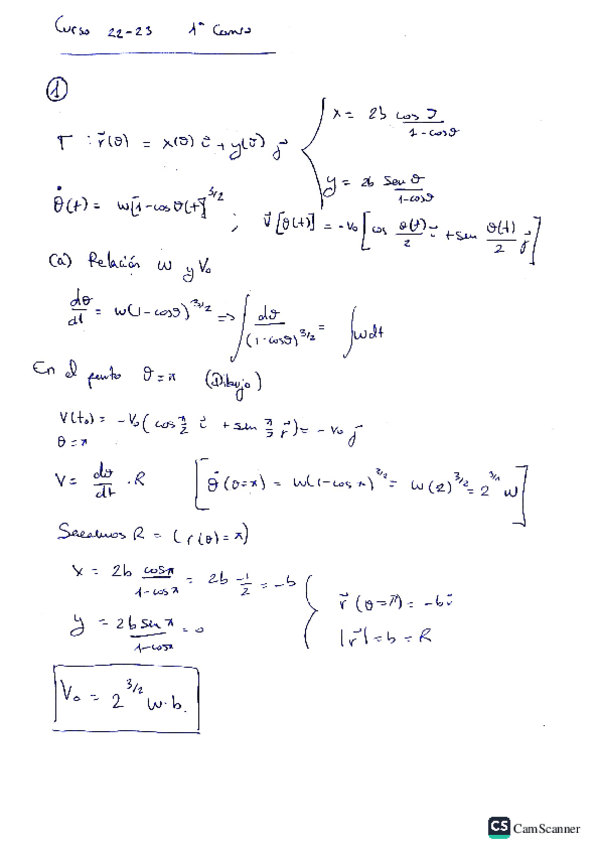 Curso 22-23 1ª Convo
①
T : r⃗(θ) = x(θ) i⃗ + y(θ) j⃗ { x = 2b cos θ / 1-cosθ
y = 2b sen θ / 1-cosθ
θ̇(t) = w[1-cosθ(t)]^3/2 ; v⃗[θ(t)] = -V₀[cos θ(t)/2 i⃗ + sen θ(t)/2 j⃗]
(a) Relación w y V₀
dθ/dt = w(1-cosθ)^3/2 => ∫ dθ/(1-cosθ)^3/2 = ∫ w dt
En el punto θ = π (Dibujo)
V(t₀) = -V₀( cos π/2 i⃗ + sen π/2 j⃗) = -V₀ j⃗
θ = π
V = dθ/dt · R [ θ̇(θ=π) = w(1-cos π)^3/2 = w(2)^3/2 = 2^3/2 w ]
Sacamos R = (r(θ) = π)
x = 2b cosπ/1-cosπ = 2b -1/2 = -b
y = 2b senπ/1-cosπ = 0 { r⃗(θ=π) = -b i⃗
|r⃗| = b = R
V₀ = 2^3/2 w·b.
CS CamScanner